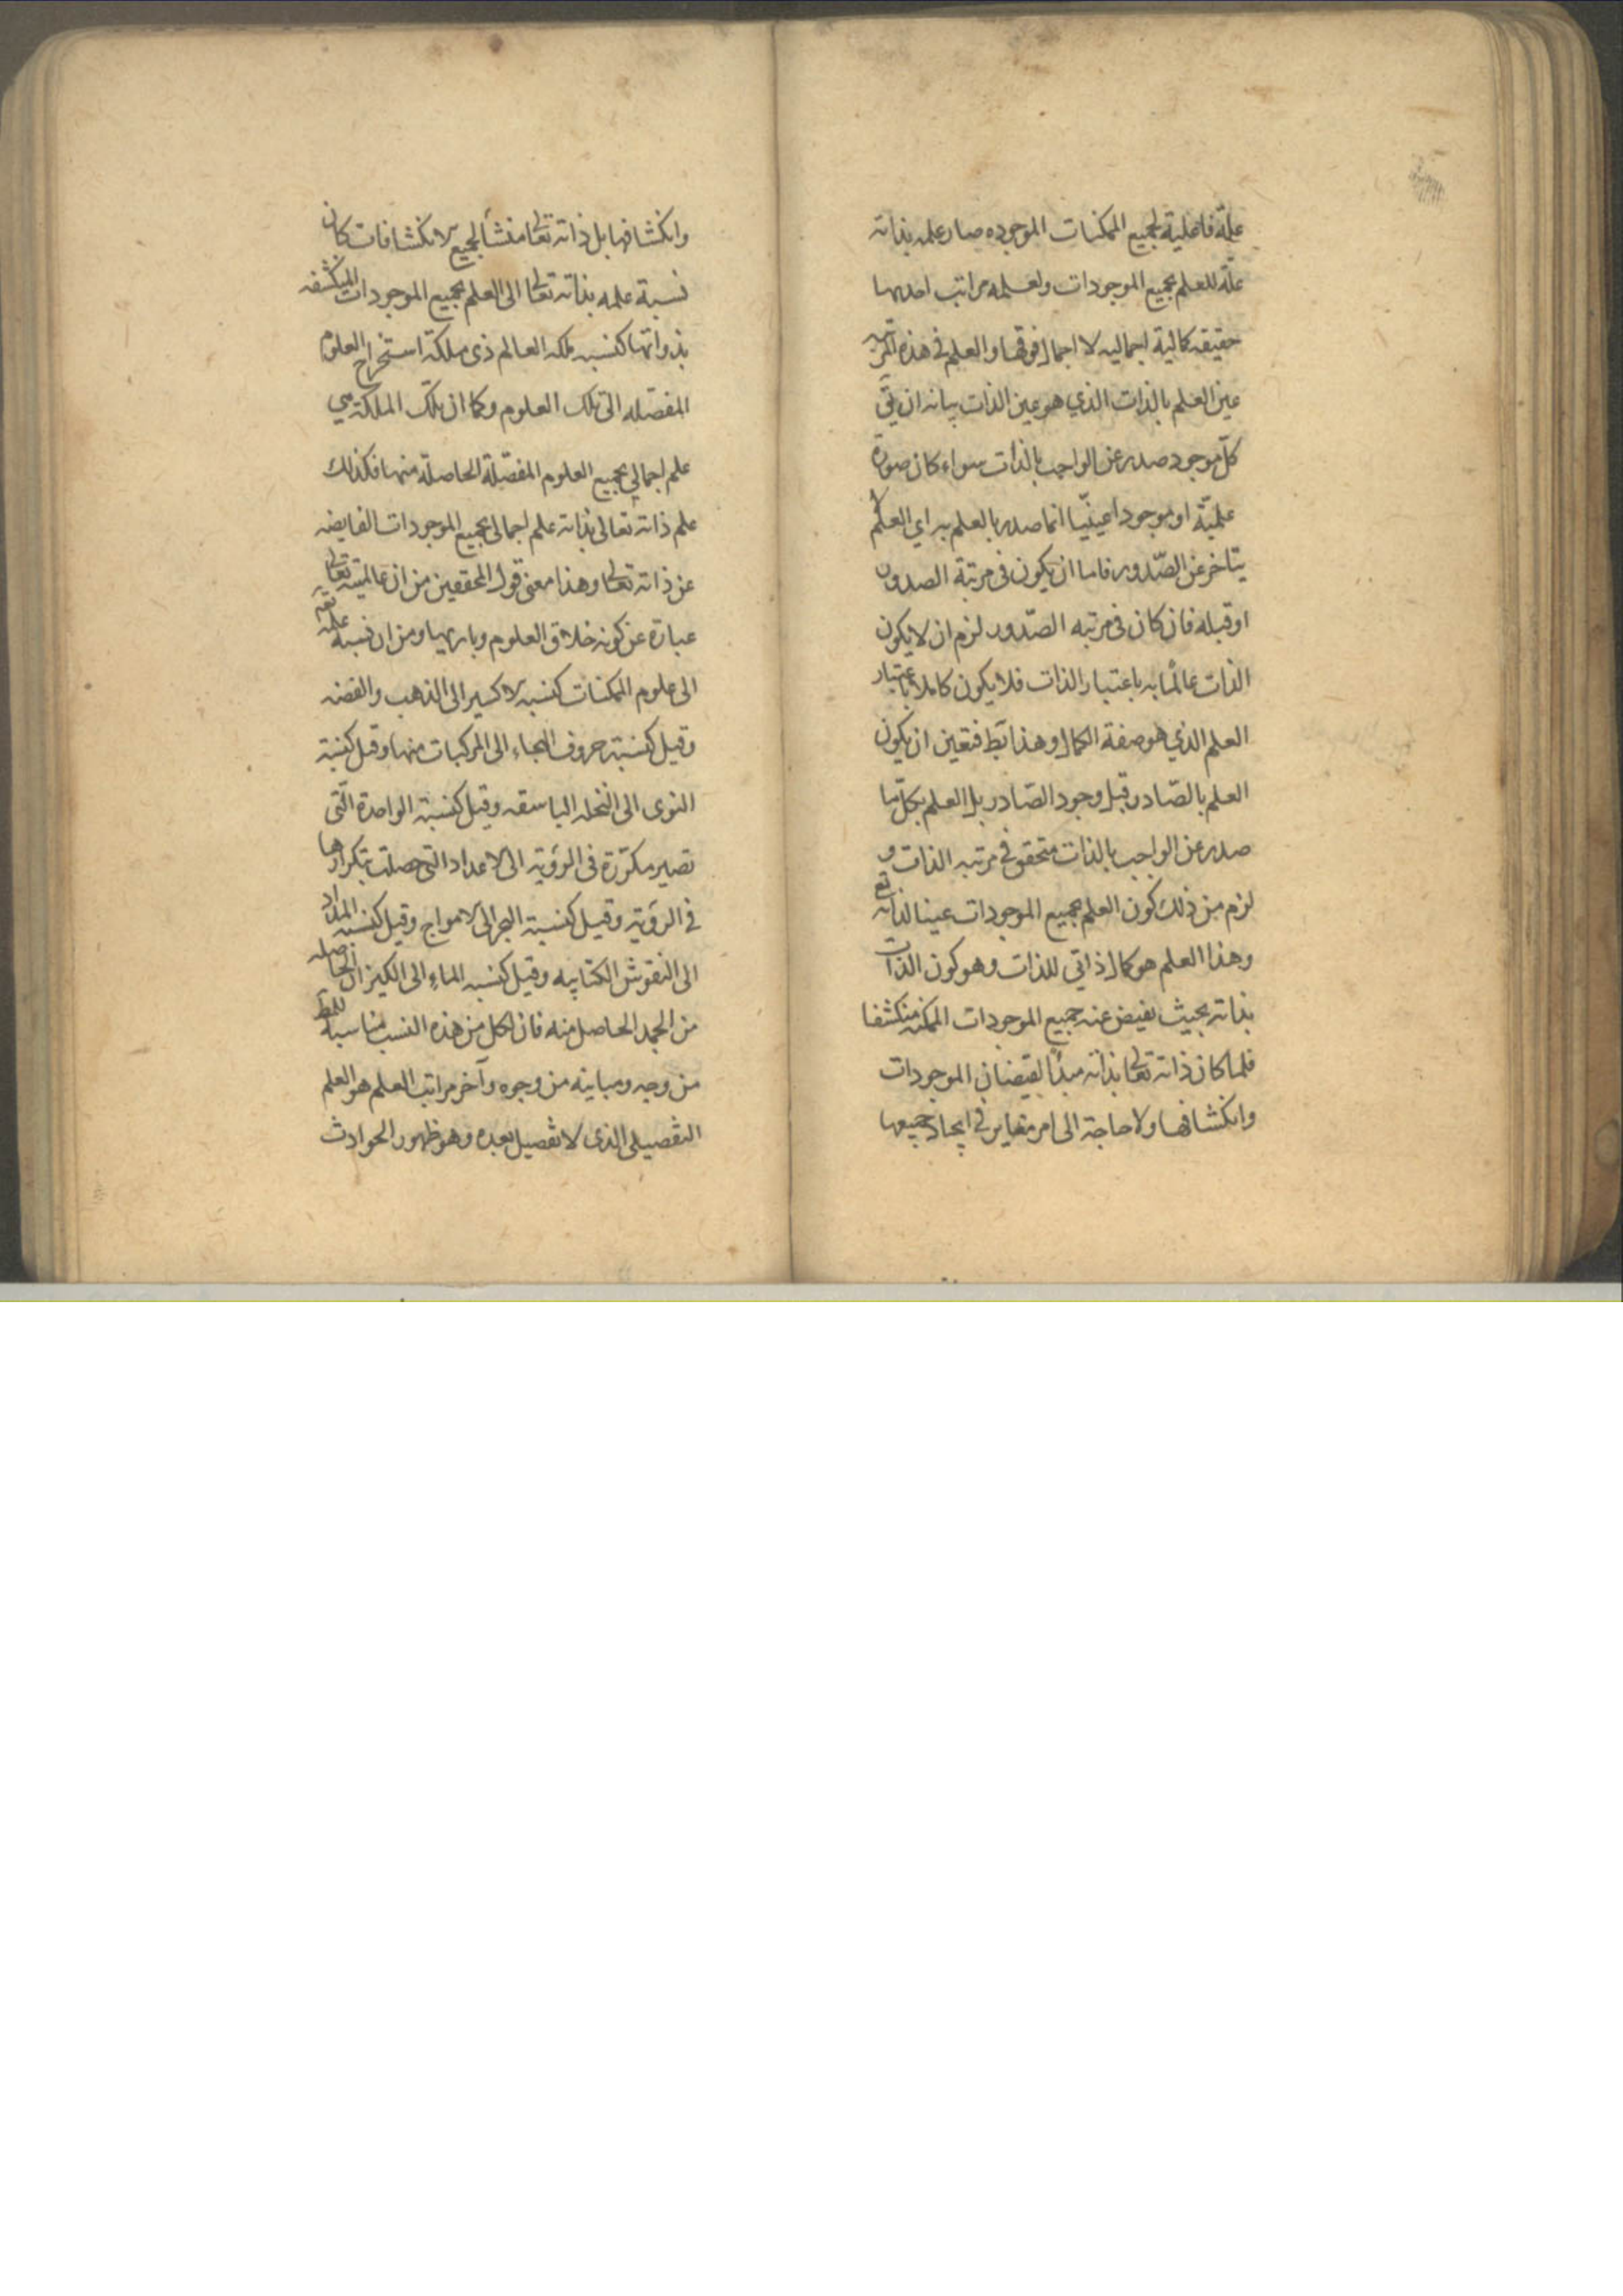 علّة فاعلية لجميع الممكنات الموجوده صار علمه بذاته
علّة للعلم بجميع الموجودات ولعلمه مراتب احديها
حقيقه كمالية اجماليه لا اجمال فوقها والعلم في هذه المرتبه
عين العلم بالذات الذي هو عين الذات بيانه ان يق
كلّ موجود صدر عن الواجب بالذات سواء كان صورة
علميّة او موجودا عينيّا انما صدر بالعلم به اي العلم لا
يتاخر عن الصّدور فاما ان يكون في مرتبة الصدور
او قبله فان كان في مرتبه الصّدور لزم ان لا يكون
الذات عالمًا به باعتبار الذات فلا يكون كاملا باعتبار
العلم الذي هو صفة الكمال وهذا بَط فتعين ان يكون
العلم بالصّادر قبل وجود الصّادر بل العلم بكلّ ما
صدر عن الواجب بالذات متحقق في مرتبه الذات و
لزم من ذلك كون العلم بجميع الموجودات عينا لذاته تع
وهذا العلم هو كمال ذاتي للذات وهو كون الذات
بذاته بحيث يفيض عنه جميع الموجودات الممكنه منكشفا
فلما كان ذاته تعالى بذاته مبدأ لفيضان الموجودات
وانكشافها ولا حاجة الى امر مغاير في ايجاد جميعها
وانكشافها بل ذاته تعالى منشأ لجميع الانكشافات كان
نسبة علمه بذاته تعالى الى العلم بجميع الموجودات المنكشفه
بذواتها كنسبه ملكه العالم ذي ملكة استخراج العلوم
المفصّله الى تلك العلوم وكما ان تلك الملكة هي
علم اجمالي بجميع العلوم المفصّلة الحاصلة منها فكذلك
علم ذاته تعالى بذاته علم اجمالى بجميع الموجودات الفايضه
عن ذاته تعالى وهذا معنى قول المحققين من ان عالميته تعالى
عبارة عن كونه خلاق العلوم وباريها ومن ان نسبة علمه تع
الى علوم الممكنات كنسبه الاكسير الى الذهب والفضه
وقيل كنسبة حروف الهجاء الى المركبات منها وقيل كنسبة
النوى الى النخله الباسقه وقيل كنسبة الواحدة الّتى
تصير مكرّرة فى الرؤية الى الاعداد التى حصلت بتكرارها
في الرؤية وقيل كنسبة البحر الى الامواج وقيل كنسبه المداد
الى النقوش الكتابيه وقيل كنسبه الماء الى الكيزان الحاصله
من الجمد الحاصل منه فان لكل من هذه النسب مناسبة للمط
من وجه ومباينه من وجوه وآخر مراتب العلم هو العلم
التفصيلى الذى لا تفصيل بعده وهو ظهور الحوادث